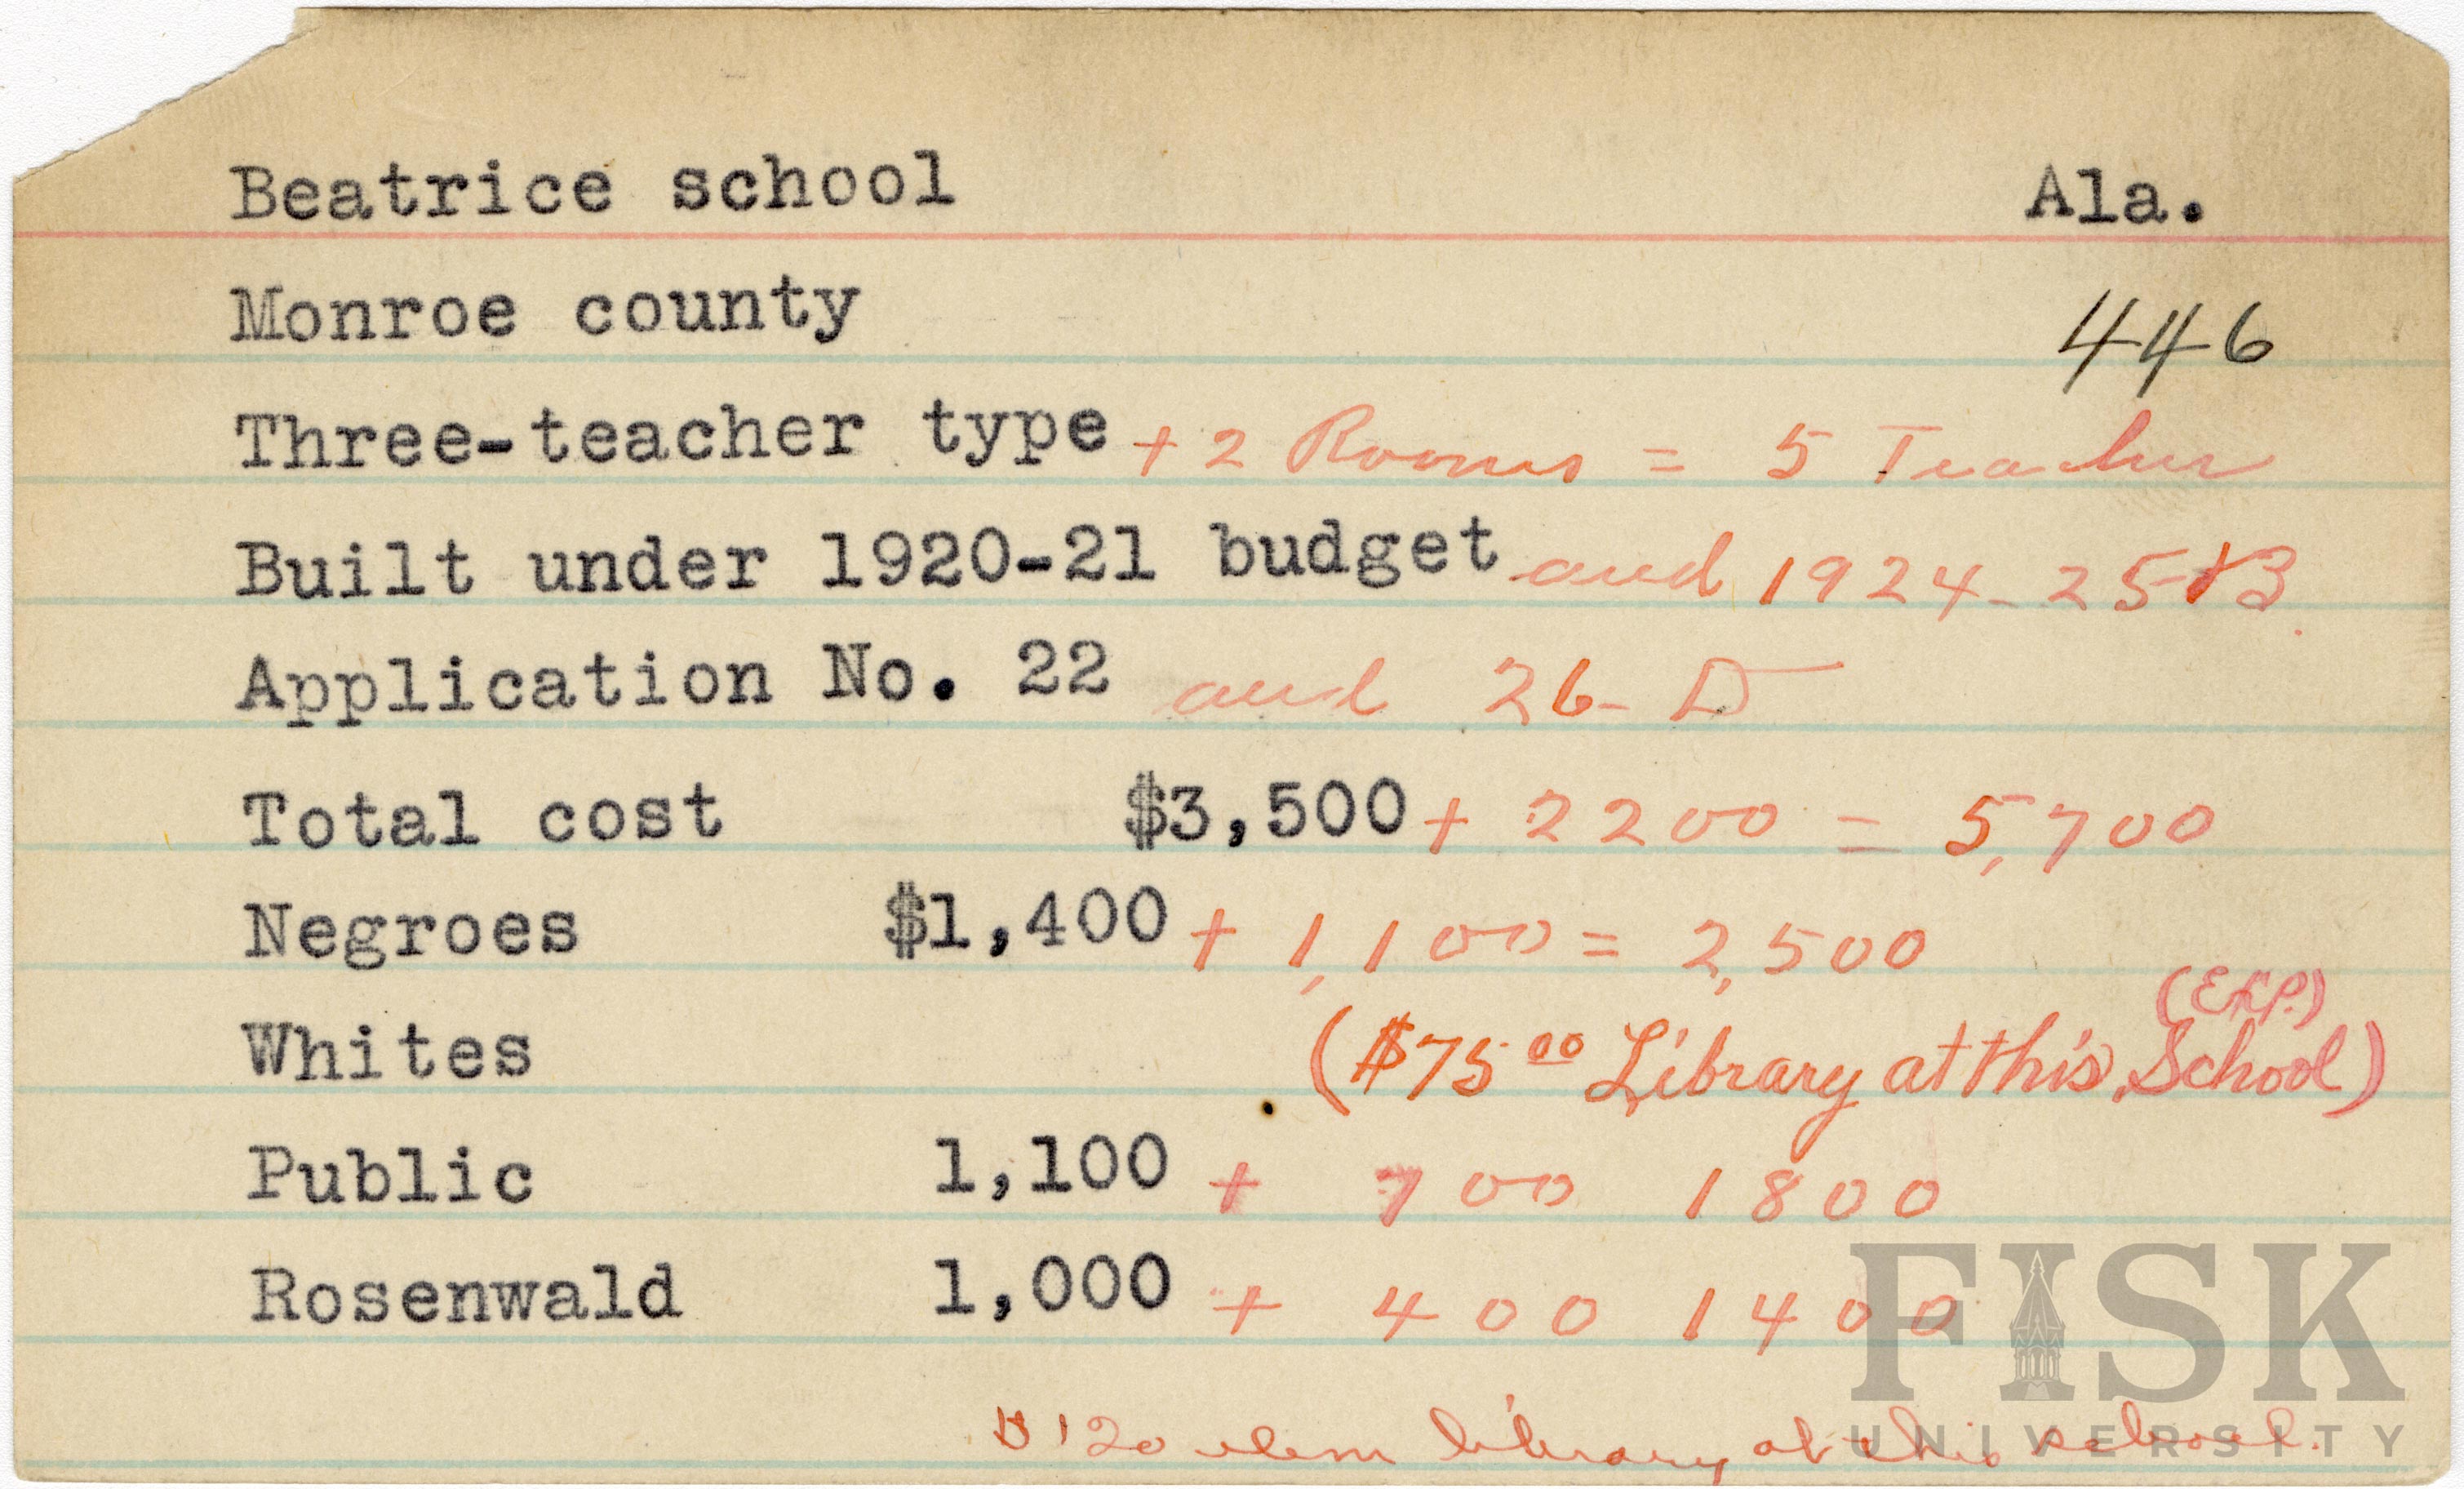 Beatrice school Ala.
Monroe county 446
Three-teacher type + 2 Rooms = 5 Teacher
Built under 1920-21 budget and 1924-25 B
Application No. 22 and 26-D
Total cost $3,500 + 2200 = 5,700
Negroes $1,400 + 1,100 = 2,500
(Exp.)
Whites ($75 00 Library at this School)
Public 1,100 + 700 1800
Rosenwald 1,000 + 400 1400
$120 elem library at this school.
FISK
UNIVERSITY